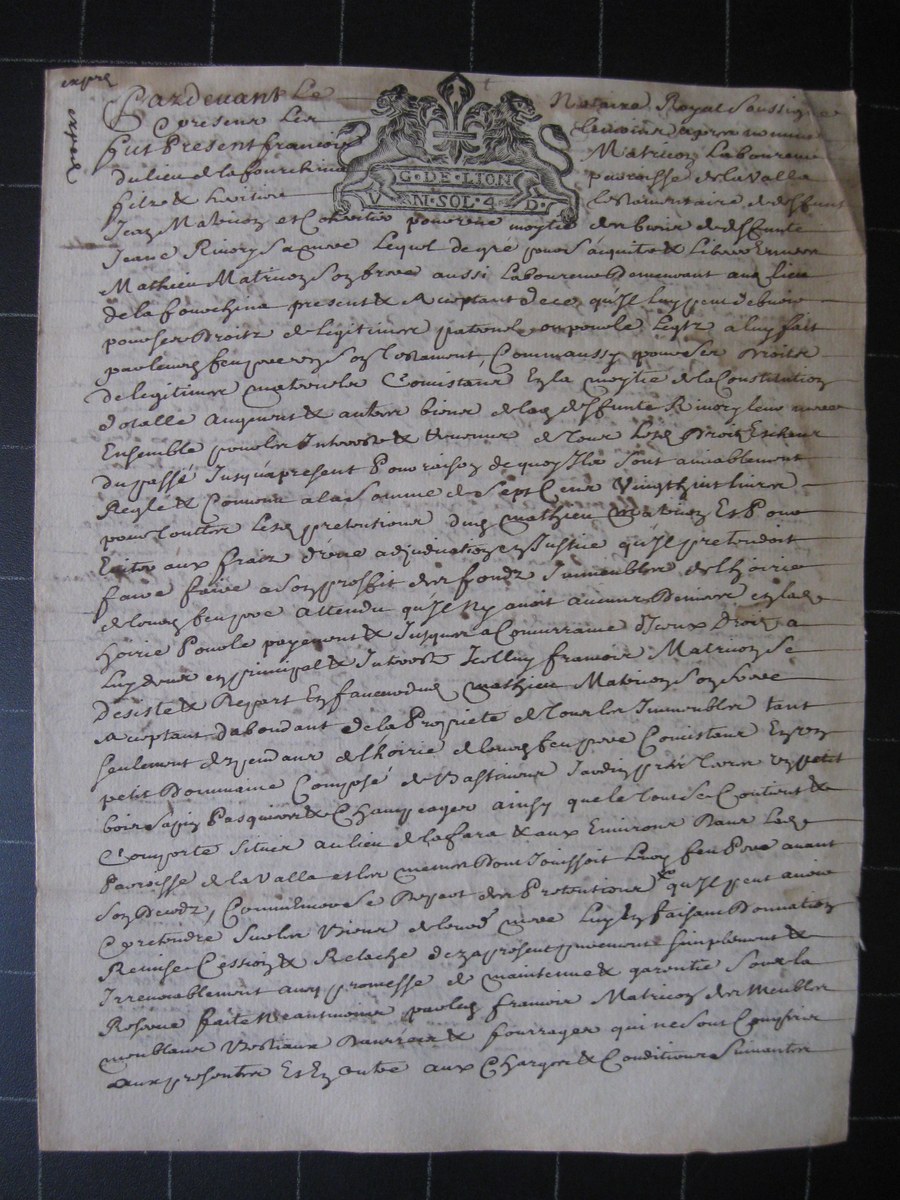 exped
expedié
Pardevant Le Notaire Royal Soussigné
Et presens Les temoins apres nommes
Fut Present francois Matricon Laboureur
du lieu de la fourchina parroisse de la Valla
fils & heritier testamentaire de deffunt
Jean Matricon et Coheritier pour une moytié des biens de deffunte
Jeane Rivory sa mere Lequel de gré pour s'aquiter & Liberer Envers
Mathieu Matricon son frere aussi Laboureur Demeurant aud Lieu
de la fourchina present & Acceptant de ce qu'Il luy peut debvoir
pour ses Droits de legitime paternels ou pour le Legtz a luy fait
par leurd feu pere en son testament, Comm'aussy pour ses droits
de legitime maternels Consistans En la moytié de la Constitution
dotalle augment & autres biens de lad deffunte Rivory leur mere
Ensemble pour les Interests & revenus de tous Lesd Droits Escheus
du passé Jusqu'a present Pour raison de quoy Ils sont amiablement
Reglés & Convenus a la somme de Sept Cens Vingt huit livres
pour touttes Lesd pretentions dud mathieu Matricon Et Pour
Eviter aux fraix d'une adjudication en Justice qu'Il pretendoit
faire faire a son proffit des fonds Immeubles de l'hoirie
de leurd feu pere attendu qu'Il N'y avoit aucuns Deniers en lad
hoirie Pour le payement & Jusques a Concurrance d'Iceux Droits a
Luy deus en principal & Interests Icelluy francois Matricon se
Desiste & Depart En faveur dud mathieu Matricon son frere
Acceptant d'abondant de la Propriete de tous les Immeubles tant
seulement dependans de l'hoirie de leurd feu pere Consistans En un
petit Domaine Composé de Bastimens Jardin prés terres un petit
bois sapin Pasquiers & Champeages ainsy que le tout se Contient &
Comporte Situés au lieu de la fara & aux Environs Dans Lad
Parroisse de la Valla et les mesmes Dont Jouissoit Leurd feu Pere avant
son Decedz, Comm'encore se Depart des Pretentions qu'Il peut avoir
& pretendre sur les Biens de leurd mere Luy En faisant Donnation
Remise Cession & Relache dez a present purement simplement &
Irrevocablement avec promesse de maintenue & garentie Sous la
Reserve faite Neantmoins par led francois Matricon des Meubles
meublans Bestiaux Danrees & fourrages qui ne sont Compris
aux presentes Et En outre aux Charges & Conditions Suivantes
G·DE·LION
VN·SOL·4·D·